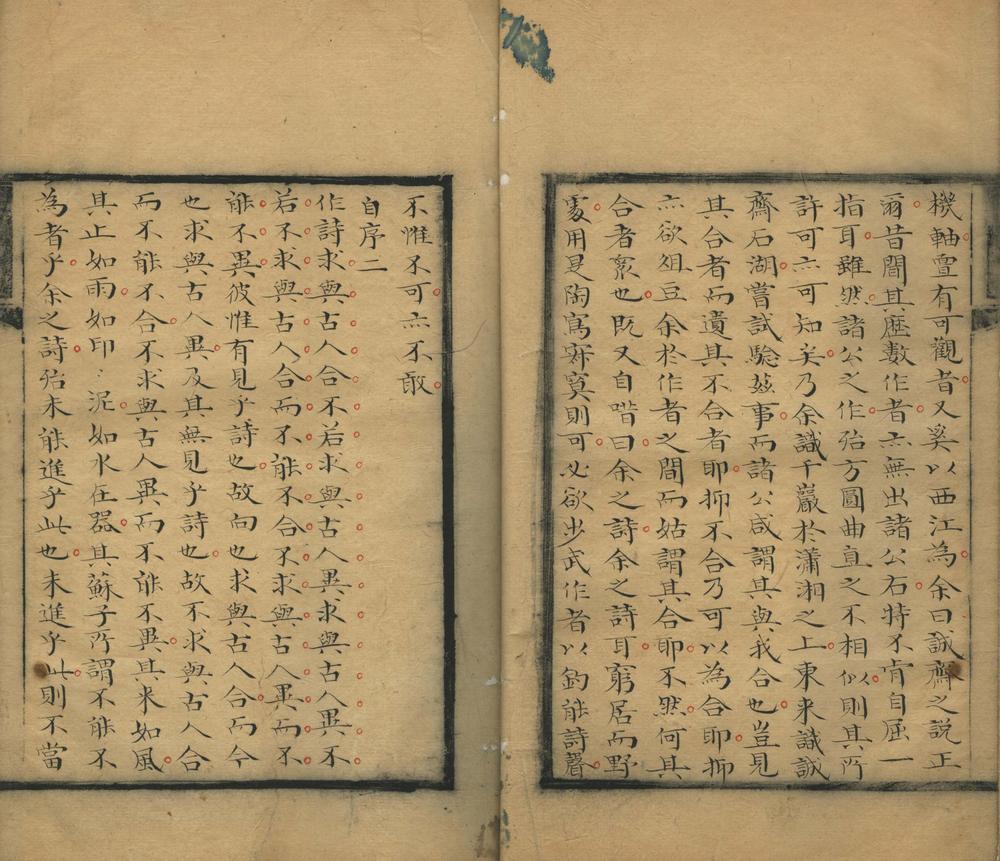 機軸亶有可觀者又奚以西江為余曰誠齋之說正
爾昔聞其歷數作者亦無出諸公右特不肯自屈一
指耳雖然諸公之作殆方圓曲直之不相似則其所
許可亦可知矣乃余識千巖於瀟湘之上東來識誠
齋石湖嘗試騐茲事而諸公咸謂其與我合也豈見
其合者而遺其不合者耶抑不合乃可以為合耶抑
亦欲俎豆余於作者之間而姑謂其合耶不然何其
合者衆也既又自喈曰余之詩余之詩耳窮居而野
處用是陶寫寂寞則可必欲步武作者以釣能詩聲
不惟不可亦不敢
自序二
作詩求與古人合不若求與古人異求與古人異不
若不求與古人合而不能不合不求與古人異而不
能不異彼惟有見乎詩也故向也求與古人合而今
也求與古人異及其無見乎詩也故不求與古人合
而不能不合不求與古人異而不能不異其來如風
其止如雨如印印泥如水在器其蘇子所謂不能不
為者乎余之詩殆未能進乎此也未進乎此則不當